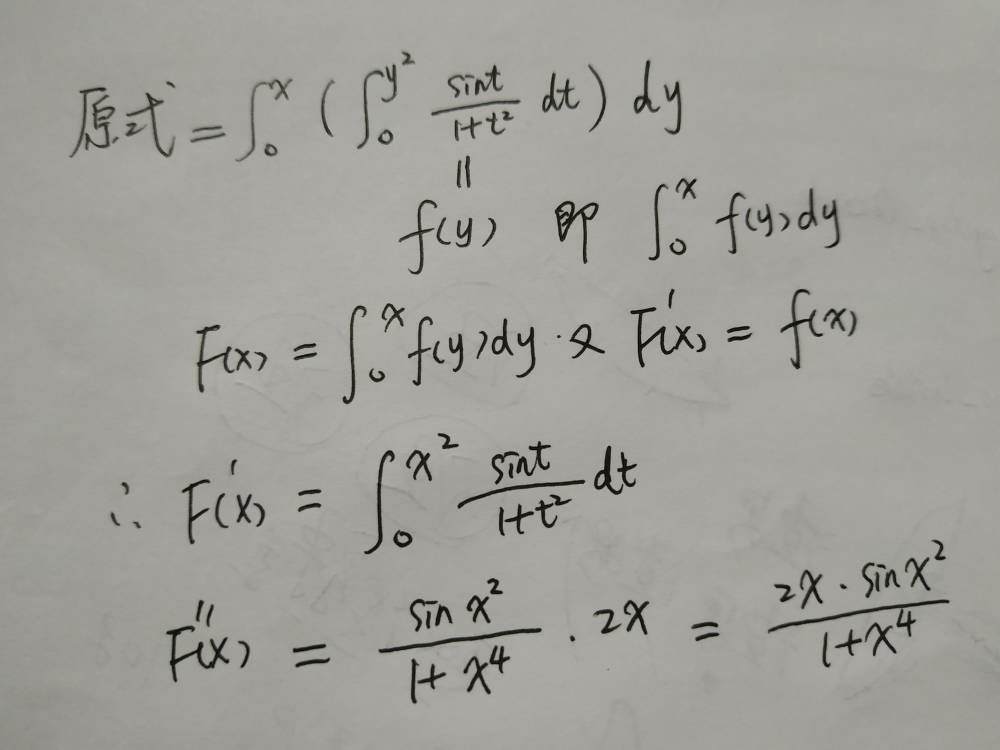 原式 = ∫₀ˣ ( ∫₀^{y²} \frac{sint}{1+t²} dt ) dy
||
f(y) 即 ∫₀ˣ f(y)dy
F(x) = ∫₀ˣ f(y)dy · 又 F'(x) = f(x)
∴ F'(x) = ∫₀^{x²} \frac{sint}{1+t²} dt
F''(x) = \frac{sin x²}{1+x⁴} · 2x = \frac{2x · sin x²}{1+x⁴}